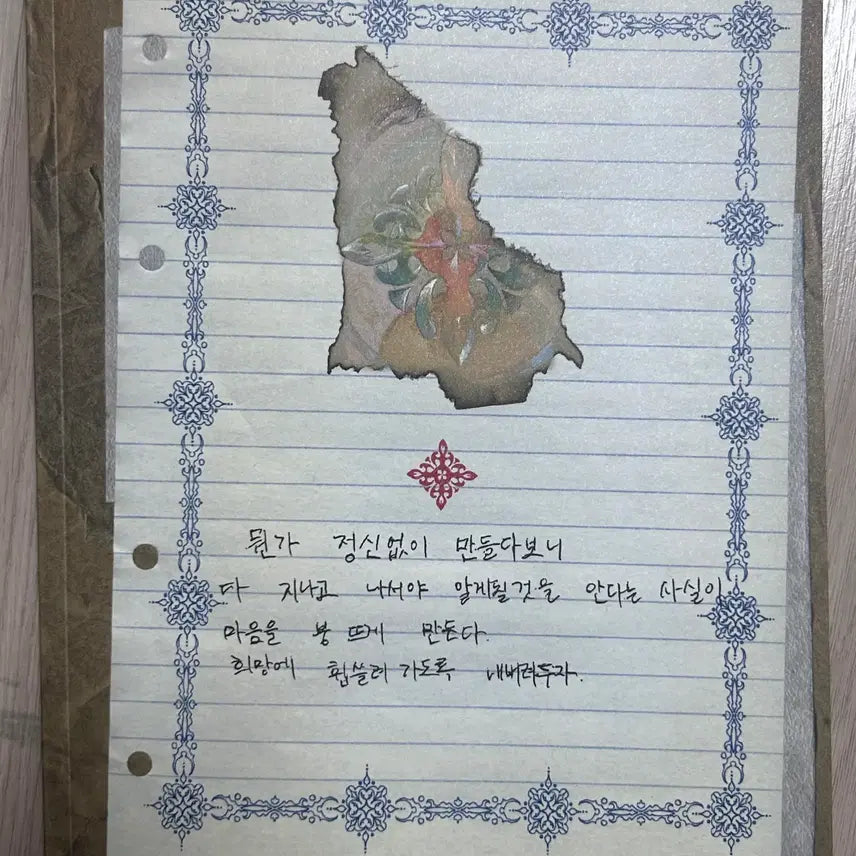 뭔가 정신없이 만들다보니
다 지나고 나서야 알게될것을 안다는 사실이
마음을 붕 뜨게 만든다.
희망에 휩쓸려 가도록 내버려두자.